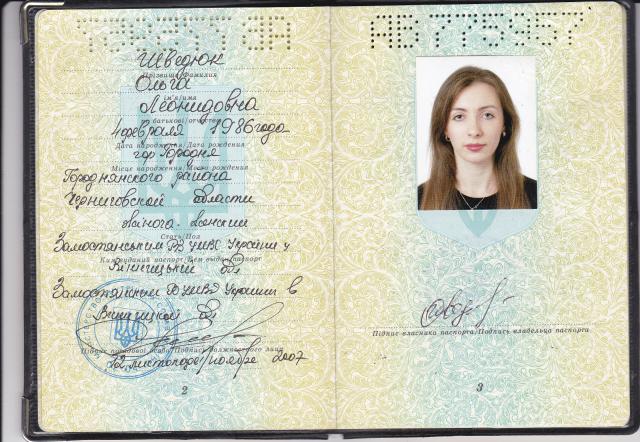 Шведюк
Прізвище/Фамилия
Ольга
ім'я/имя
Леонидовна
по батькові/отчество
4 февраля 1986 года
Дата народження/Дата рождения
гор Городня
Місце народження/Место рождения
Городнянского района
Черниговской области
женский
Стать/Пол
Замостянським РВ УМВС України у
Ким виданий паспорт/Кем выдан паспорт
Вінницькій обл
Замостянским РО УМВД Украины в
Винницкой обл
Підпис посадової особи/Подпись должностного лица
22 листопада/ноября 2007
2
АВ
Підпис власника паспорта/Подпись владельца паспорта
3